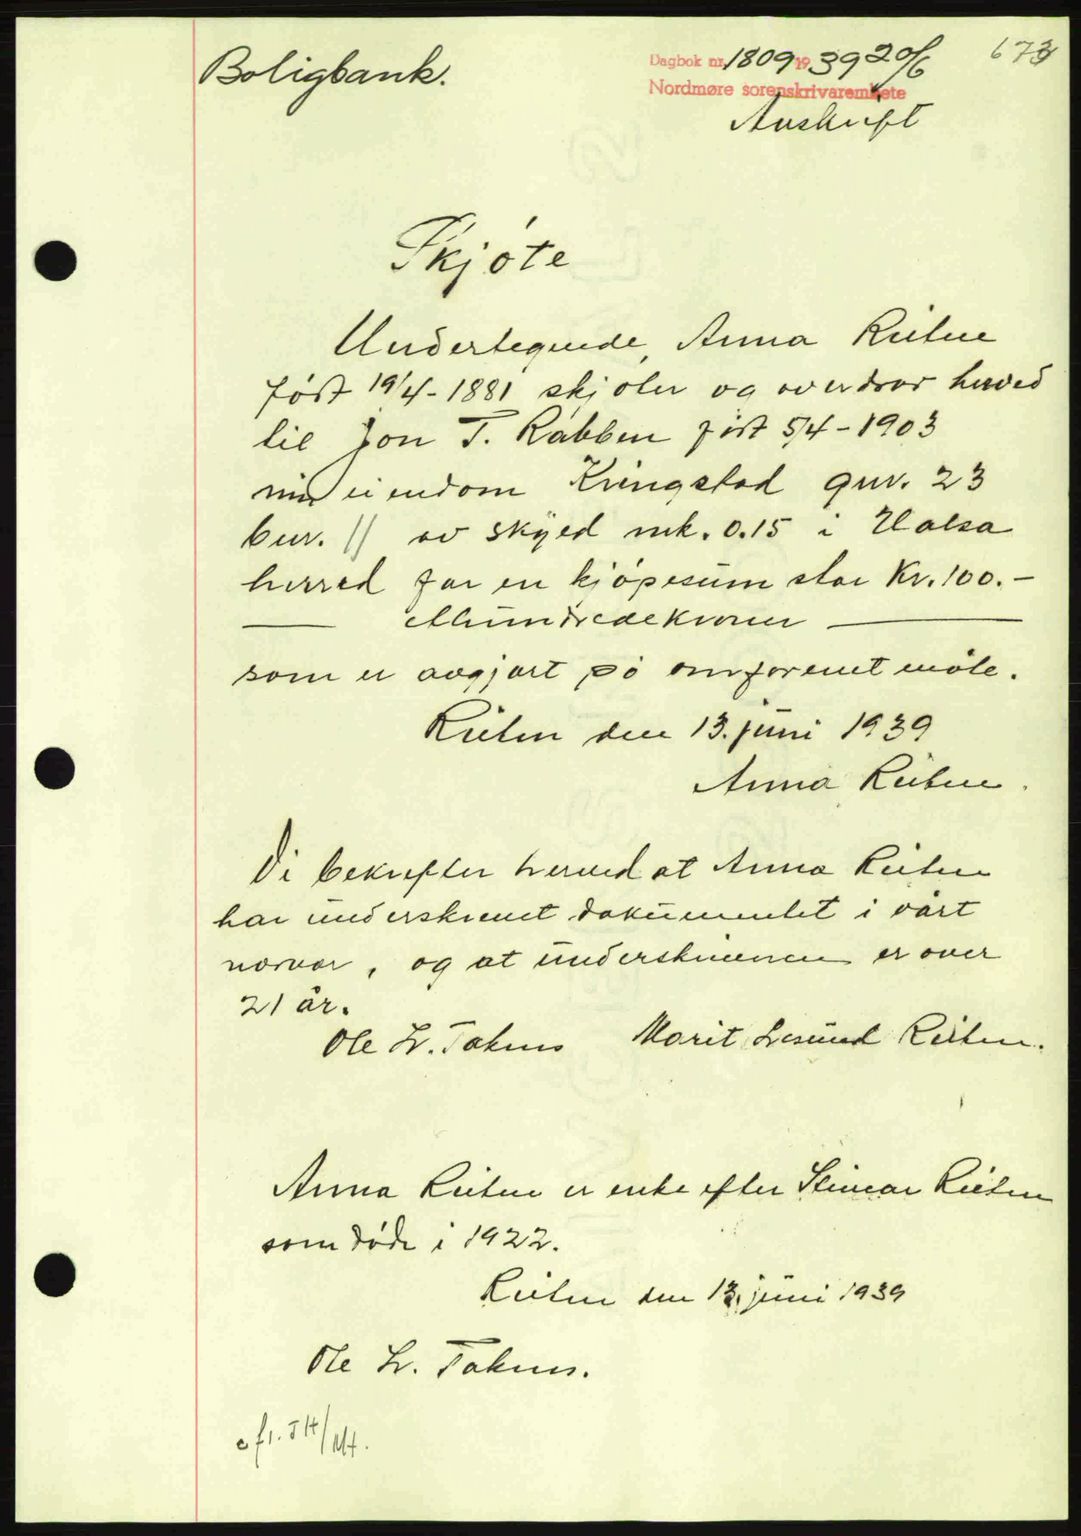 Boligbank.
Dagbok nr. 1809 1939 20/6
673
Nordmøre sorenskriverembete
Avskrift
Skjøte
Undertegnede, Anna Reiten
født 19/4-1881 skjøter og overdrar herved
til Jon T. Rabben født 5/4-1903
min eiendom Kringstad gnr. 23
bnr. 11 av skyld mk. 0.15 i Halsa
herred for en kjøpesum stor Kr. 100.-
etthundredekroner
som er avgjort på omforenet måte.
Reiten den 13. juni 1939
Anna Reiten.
Vi bekrefter herved at Anna Reiten
har underskrevet dokumentet i vårt
nærvær, og at underskriveren er over
21 år.
Ole Lr. Taknes Marit Lesund Reiten.
Anna Reiten er enke efter Steinar Reiten
som døde i 1922.
Reiten den 13. juni 1939
Ole Lr. Taknes.